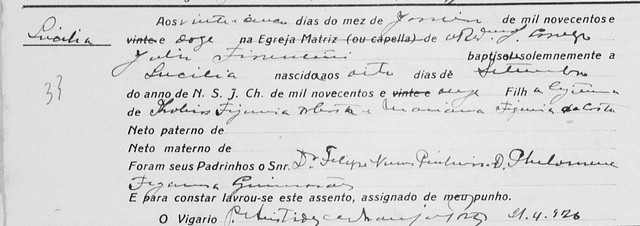 Aos vinte e cinco dias do mez de Janeiro de mil novecentos e
Lucilia vinte e doze na Egreja Matriz (ou capella) de o Rdmo. S. Conego
Julio Fiorentini baptisei solemnemente a
33 Lucilia nascido aos oito dias de Setembro
do anno de N. S. J. Ch. de mil novecentos e vinte e onze Filha legitima
de Figueira da Costa e Marianna Figueira da Costa
Neto paterno de
Neto materno de
Foram seus Padrinhos o Snr. Dr. Felippe Nunes Pinheiro D. Philomena
Figueira Guimarães
E para constar lavrou-se este assento, assignado de meu punho.
O Vigario P. Aristides 21.4.926